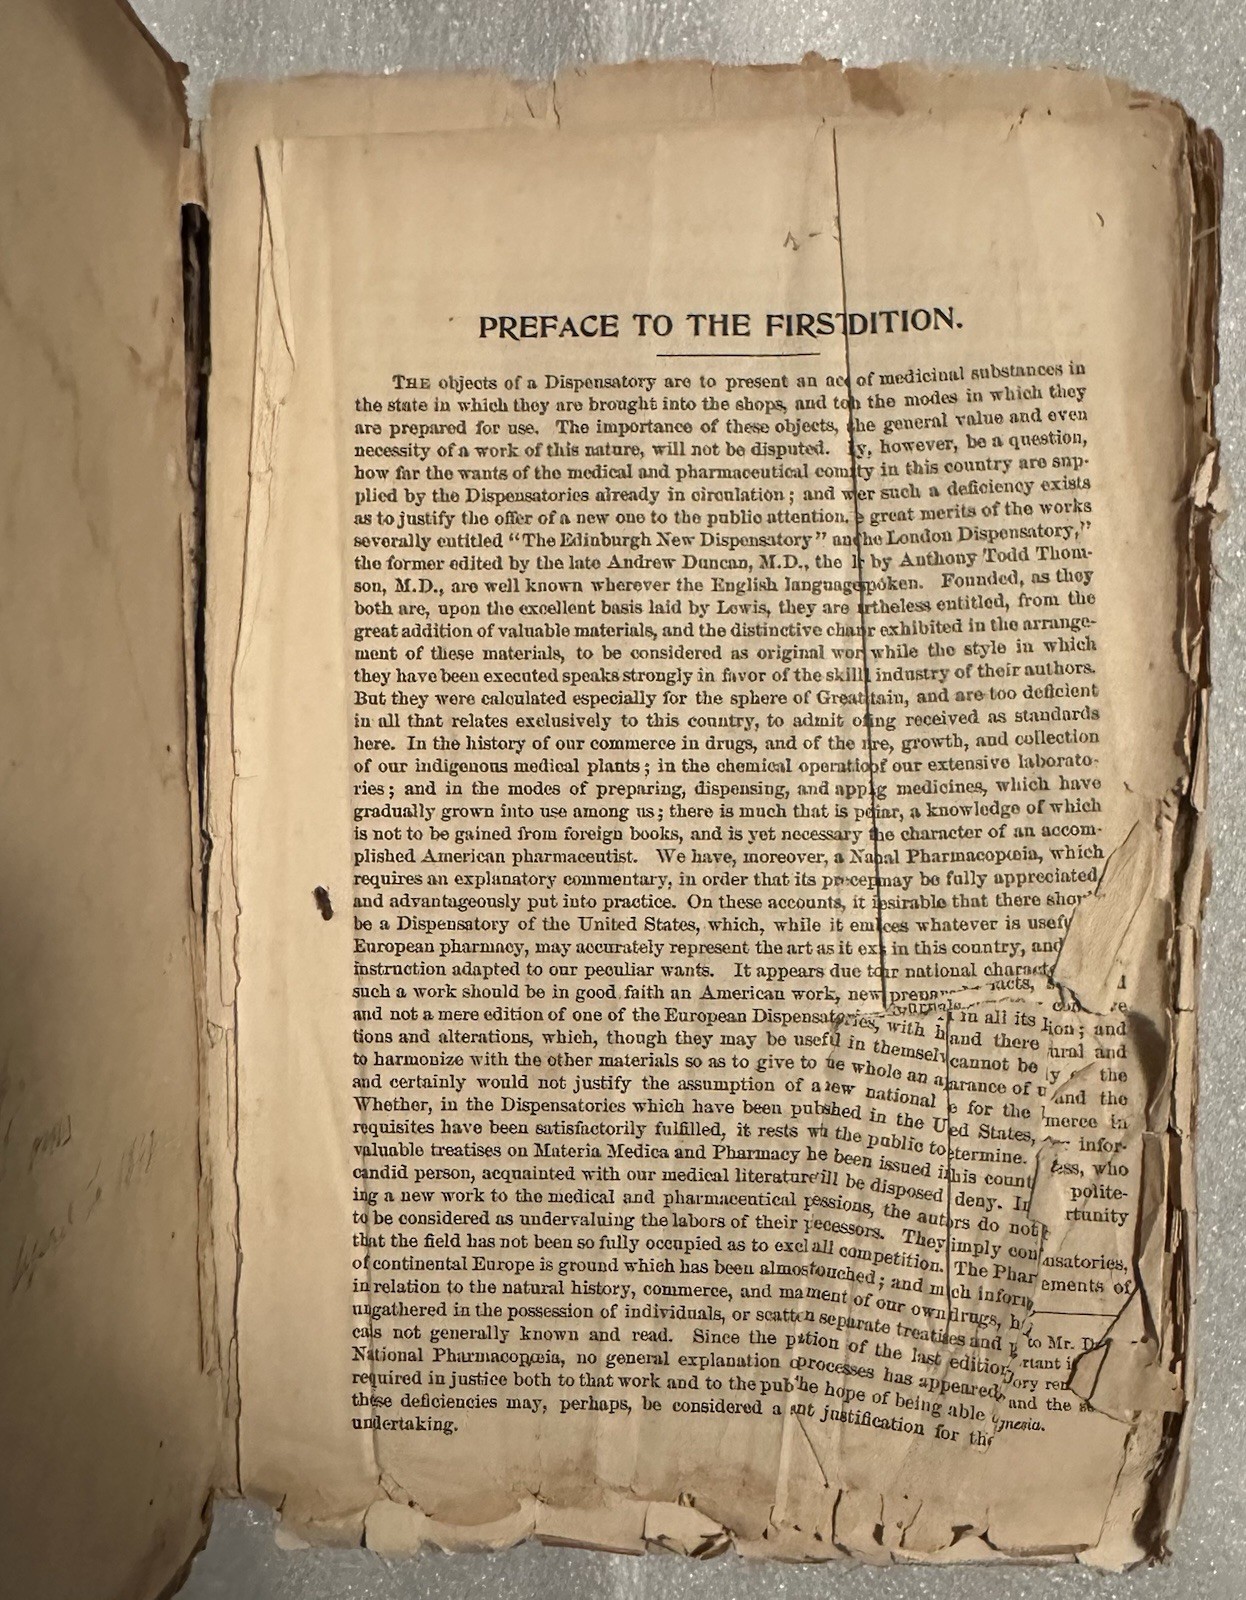 PREFACE TO THE FIRST DITION.
THE objects of a Dispensatory are to present an acc of medicinal substances in
the state in which they are brought into the shops, and to h the modes in which they
are prepared for use. The importance of these objects, the general value and even
necessity of a work of this nature, will not be disputed. y, however, be a question,
how far the wants of the medical and pharmaceutical com ty in this country are sup-
plied by the Dispensatories already in circulation; and w er such a deficiency exists
as to justify the offer of a new one to the public attention. e great merits of the works
severally entitled “The Edinburgh New Dispensatory” an he London Dispensatory,”
the former edited by the late Andrew Duncan, M.D., the l by Anthony Todd Thom-
son, M.D., are well known wherever the English language poken. Founded, as they
both are, upon the excellent basis laid by Lewis, they are rtheless entitled, from the
great addition of valuable materials, and the distinctive cha r exhibited in the arrange-
ment of these materials, to be considered as original wor while the style in which
they have been executed speaks strongly in favor of the skill industry of their authors.
But they were calculated especially for the sphere of Great tain, and are too deficient
in all that relates exclusively to this country, to admit of ing received as standards
here. In the history of our commerce in drugs, and of the re, growth, and collection
of our indigenous medical plants; in the chemical operatio of our extensive laborato-
ries; and in the modes of preparing, dispensing, and app g medicines, which have
gradually grown into use among us; there is much that is pe iar, a knowledge of which
is not to be gained from foreign books, and is yet necessary the character of an accom-
plished American pharmaceutist. We have, moreover, a Na al Pharmacopœia, which
requires an explanatory commentary, in order that its precep may be fully appreciated,
and advantageously put into practice. On these accounts, it esirable that there shou
be a Dispensatory of the United States, which, while it em ces whatever is usefu
European pharmacy, may accurately represent the art as it ex in this country, and
instruction adapted to our peculiar wants. It appears due to r national characte
such a work should be in good faith an American work, new prepa in all its
and not a mere edition of one of the European Dispensatories, with h and there
tions and alterations, which, though they may be useful in themsel cannot be
to harmonize with the other materials so as to give to the whole an a arance of
and certainly would not justify the assumption of a new national e for the
Whether, in the Dispensatories which have been published in the U ed States,
requisites have been satisfactorily fulfilled, it rests wi the public to termine.
valuable treatises on Materia Medica and Pharmacy have been issued i his count
candid person, acquainted with our medical literature ill be disposed deny. In
ing a new work to the medical and pharmaceutical essions, the aut rs do not
to be considered as undervaluing the labors of their ecessors. They imply con
that the field has not been so fully occupied as to excl all competition. The Phar
of continental Europe is ground which has been almost ouched; and m ch inform
in relation to the natural history, commerce, and ma ment of our own drugs,
ungathered in the possession of individuals, or scatte n separate treatises and
cals not generally known and read. Since the p ation of the last edition
National Pharmacopœia, no general explanation o processes has appeared,
required in justice both to that work and to the pub he hope of being able
these deficiencies may, perhaps, be considered a ent justification for the
undertaking.